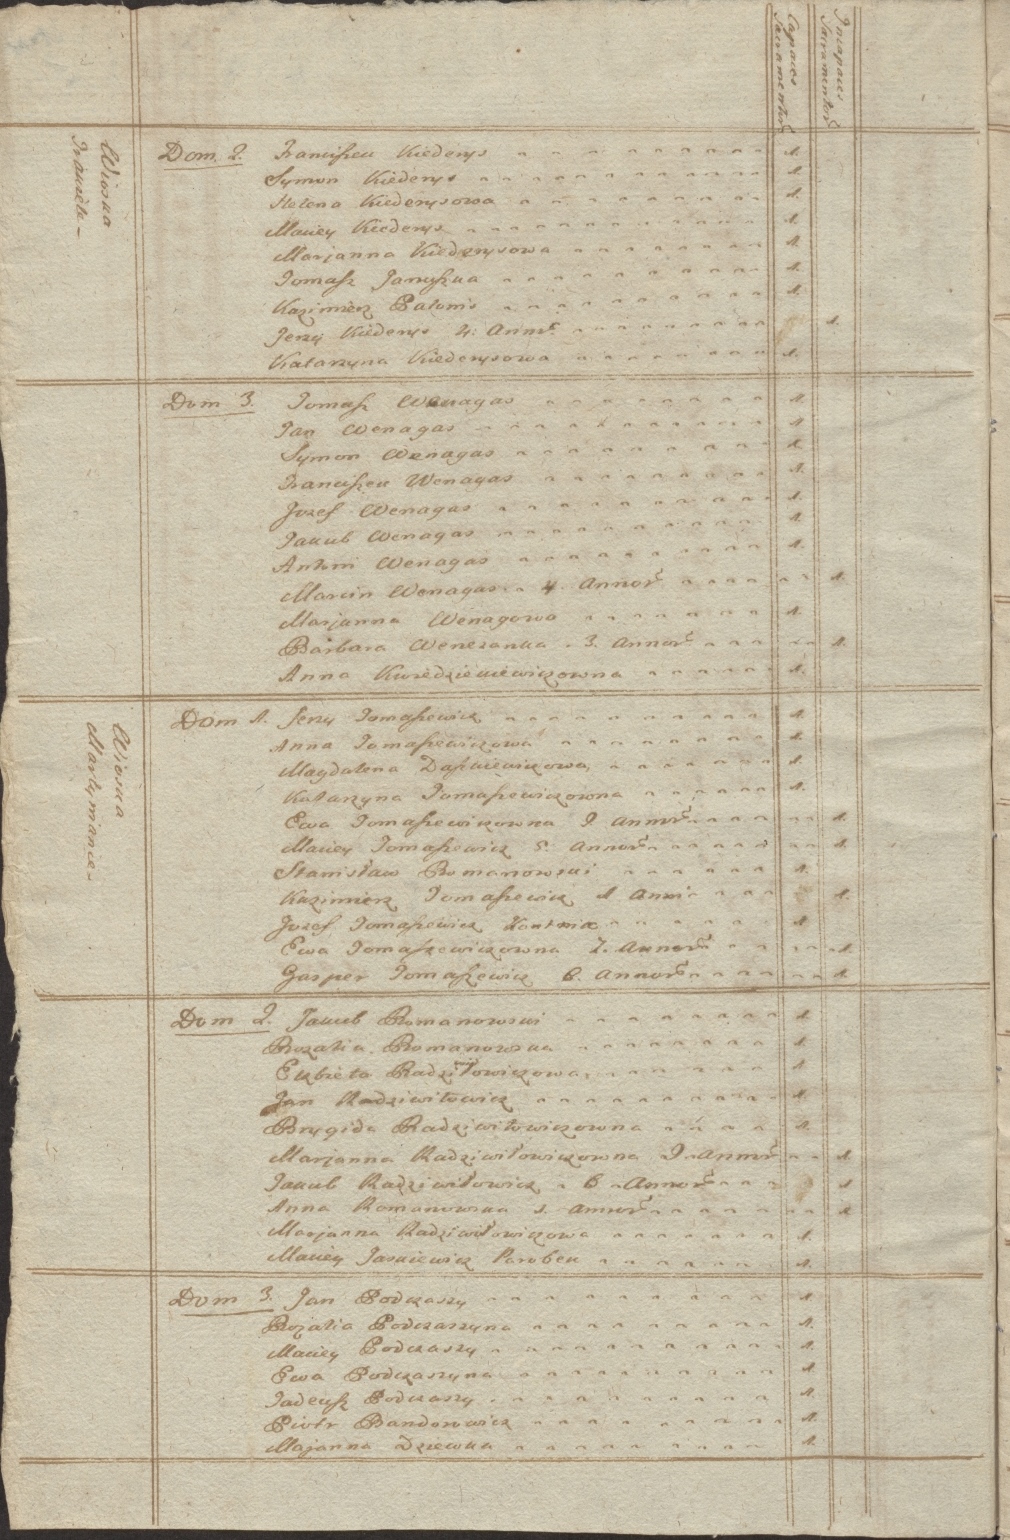 Capaces Sacramentor
Incapaces Sacramentor
Wioska
Dom. 2. Franciszek Kiederys 1.
Symon Kiederys 1.
Helena Kiederysowa 1.
Maciey Kiederys 1.
Marjanna Kiederysowa 1.
Tomasz Januszka 1.
Kazimierz Patonis 1.
Jerzy Kiederys 4. Annor 1.
Katarzyna Kiederysowa 1.
Dom 3. Tomasz Wenagas 1.
Jan Wenagas 1.
Symon Wenagas 1.
Franciszek Wenagas 1.
Jozef Wenagas 1.
Jakub Wenagas 1.
Antoni Wenagas 1.
Marcin Wenagas 4. Annor 1.
Marjanna Wenagowa 1.
Barbara 3. Annor 1.
Anna 1.
Wioska Martyniance
Dom 1. Jerzy Tomaszewicz 1.
Anna Tomaszewiczowa 1.
Magdalena Daszkiewiczowa 1.
Katarzyna Tomaszewiczowna 1.
Ewa Tomaszewiczowna 9 Annor 1.
Maciey Tomaszewicz 5. Annor 1.
Stanisław Romanowski 1.
Kazimierz Tomaszewicz 1 Anni 1.
Jozef Tomaszewicz 1
Ewa Tomaszewiczowna 7. Annor 1
Gasper Tomaszewicz 6. Annor 1
Dom 2. Jakub Romanowski 1
Rozalia Romanowska 1
Elzbieta Radziwiłowiczowa 1
Jan Radziwiłowicz 1.
Brygida Radziwiłowiczowna 1.
Marjanna Radziwiłowiczowna 9 Annor 1
Jakub Radziwiłowicz 6 Annor 1
Anna Romanowska Annor 1
Marjanna Radziwiłowiczowa 1.
Maciey Jaskiewicz Parobek 1.
Dom 3. Jan Podczaszy 1
Rozalia Podczaszyna 1.
Maciey Podczaszy 1.
Ewa Podczaszyna 1
Tadeusz Podczaszy 1.
Piotr Bandorowicz 1.
Majanna Dziewka 1.